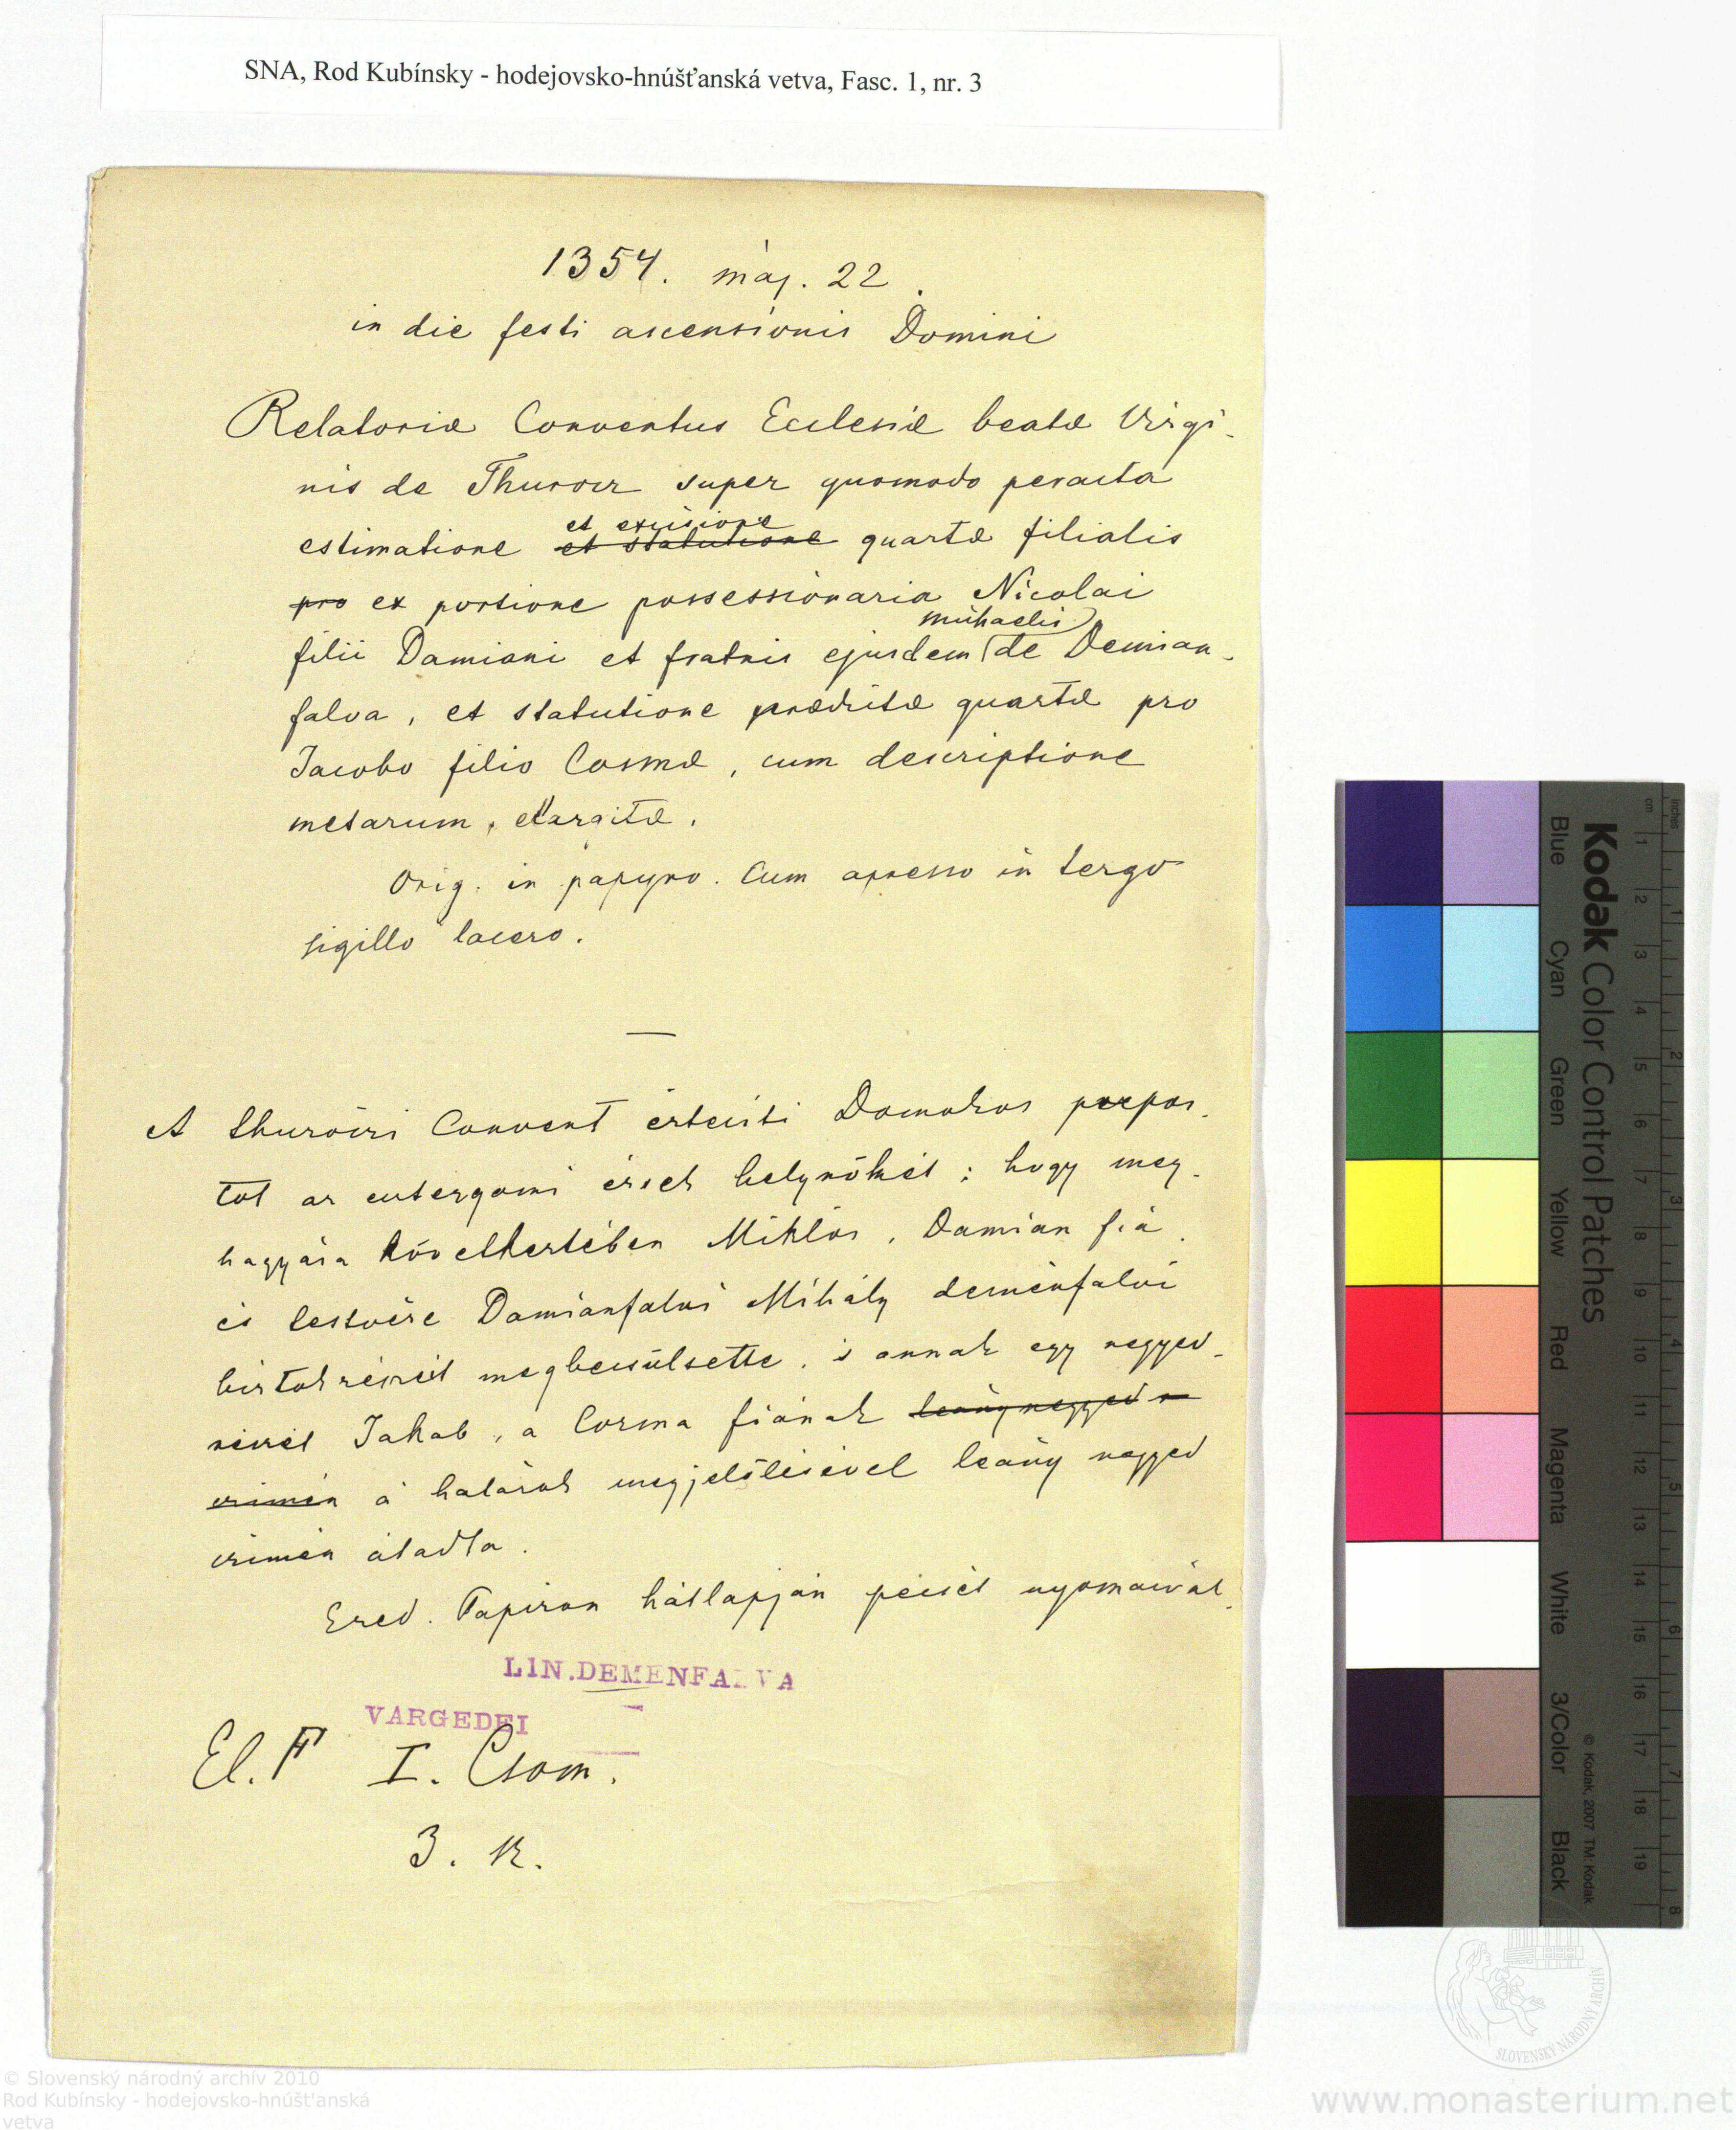 SNA, Rod Kubínsky - hodejovsko-hnúšťanská vetva, Fasc. 1, nr. 3
1354. máj. 22.
in die festi ascensionis Domini
Relatoriæ Conventus Ecclesiæ beatæ Virgi-
nis de Thurocz super quomodo peracta
et excisione
estimatione et statutione quartæ filialis
pro ex portione possessionaria Nicolai
michaelis
filii Damiani et fratris ejusdem de Demian-
falva, et statutione prædictæ quartæ pro
Jacobo filio Cosmæ, cum descriptione
metarum, elargitæ.
Orig. in papyro. Cum apresso in tergo
sigillo lacero.
A thuróczi Convent értesíti Domokos prépos-
tot az esztergomi érsek helynökét: hogy meg-
hagyása következtében Miklós, Damian fia
és testvére Damianfalvi Mihály deménfalvi
birtokrészét megbecsültette, s annak egy negyed-
részét Jakab, a Cosma fiának leánynegyed
czimén a határok megjelölésével leány negyed
czimén átadta.
Ered. Papiron hátlapján pecsét nyomaival.
LIN.DEMENFALVA
VARGEDEI
El. F I. Csom.
3.
Kodak Color Control Patches
Blue Cyan Green Yellow Red Magenta White 3/Color Black
© Kodak, 2007 TM: Kodak
inches 1 2 3 4 5 6 7 8
cm 1 2 3 4 5 6 7 8 9 10 11 12 13 14 15 16 17 18 19
SLOVENSKÝ NÁRODNÝ ARCHÍV
© Slovenský národný archív 2010
Rod Kubínsky - hodejovsko-hnúšt'anská
vetva
www.monasterium.net